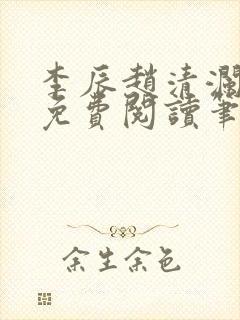 李辰趙清瀾
免費閱讀筆
余生余色